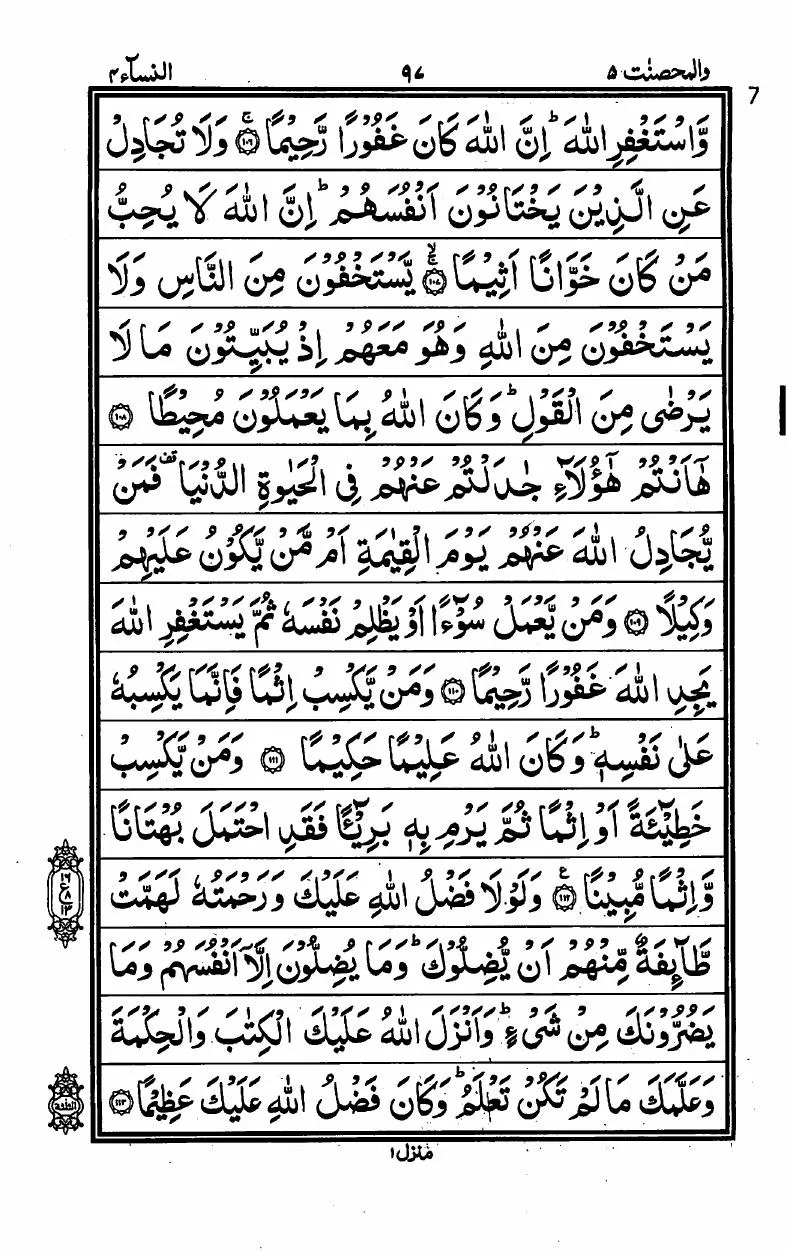 والمحصنٰت ۵ ۹۷ النسآء ۴
7
وَّاسۡتَغۡفِرِ اللّٰهَ ؕ اِنَّ اللّٰهَ كَانَ غَفُوۡرًا رَّحِيۡمًا ۚ‏ ﴿۱۰۶﴾ وَلَا تُجَادِلۡ
عَنِ الَّذِيۡنَ يَخۡتَانُوۡنَ اَنۡفُسَهُمۡ ؕ اِنَّ اللّٰهَ لَا يُحِبُّ
مَنۡ كَانَ خَوَّانًا اَثِيۡمًا ۙۚ ﴿۱۰۷﴾ يَّسۡتَخۡفُوۡنَ مِنَ النَّاسِ وَلَا
يَسۡتَخۡفُوۡنَ مِنَ اللّٰهِ وَهُوَ مَعَهُمۡ اِذۡ يُبَيِّتُوۡنَ مَا لَا
يَرۡضٰى مِنَ الۡقَوۡلِ ؕ وَكَانَ اللّٰهُ بِمَا يَعۡمَلُوۡنَ مُحِيۡطًا ﴿۱۰۸﴾
هٰۤاَنۡتُمۡ هٰٓؤُلَۤاءِ جٰدَلۡتُمۡ عَنۡهُمۡ فِى الۡحَيٰوةِ الدُّنۡيَا قف فَمَنۡ
يُّجَادِلُ اللّٰهَ عَنۡهُمۡ يَوۡمَ الۡقِيٰمَةِ اَمۡ مَّنۡ يَّكُوۡنُ عَلَيۡهِمۡ
وَكِيۡلًا ﴿۱۰۹﴾ وَمَنۡ يَّعۡمَلۡ سُوۡٓءًا اَوۡ يَظۡلِمۡ نَفۡسَهٗ ثُمَّ يَسۡتَغۡفِرِ اللّٰهَ
يَجِدِ اللّٰهَ غَفُوۡرًا رَّحِيۡمًا ﴿۱۱۰﴾ وَمَنۡ يَّكۡسِبۡ اِثۡمًا فَاِنَّمَا يَكۡسِبُهٗ
عَلٰى نَفۡسِهٖ ؕ وَكَانَ اللّٰهُ عَلِيۡمًا حَكِيۡمًا ﴿۱۱۱﴾ وَمَنۡ يَّكۡسِبۡ
خَطِيۡٓئَةً اَوۡ اِثۡمًا ثُمَّ يَرۡمِ بِهٖ بَرِيۡٓئًا فَقَدِ احۡتَمَلَ بُهۡتَانًا
وَّاِثۡمًا مُّبِيۡنًا ﴿۱۱۲﴾ ع وَلَوۡلَا فَضۡلُ اللّٰهِ عَلَيۡكَ وَرَحۡمَتُهٗ لَهَمَّتۡ
طَّآئِفَةٌ مِّنۡهُمۡ اَنۡ يُّضِلُّوۡكَ ؕ وَمَا يُضِلُّوۡنَ اِلَّاۤ اَنۡفُسَهُمۡ وَمَا
يَضُرُّوۡنَكَ مِنۡ شَىۡءٍ ؕ وَاَنۡزَلَ اللّٰهُ عَلَيۡكَ الۡكِتٰبَ وَالۡحِكۡمَةَ
وَعَلَّمَكَ مَا لَمۡ تَكُنۡ تَعۡلَمُ ؕ وَكَانَ فَضۡلُ اللّٰهِ عَلَيۡكَ عَظِيۡمًا ﴿۱۱۳﴾
۱۶
ع ۸
۱۳
منزل ۱